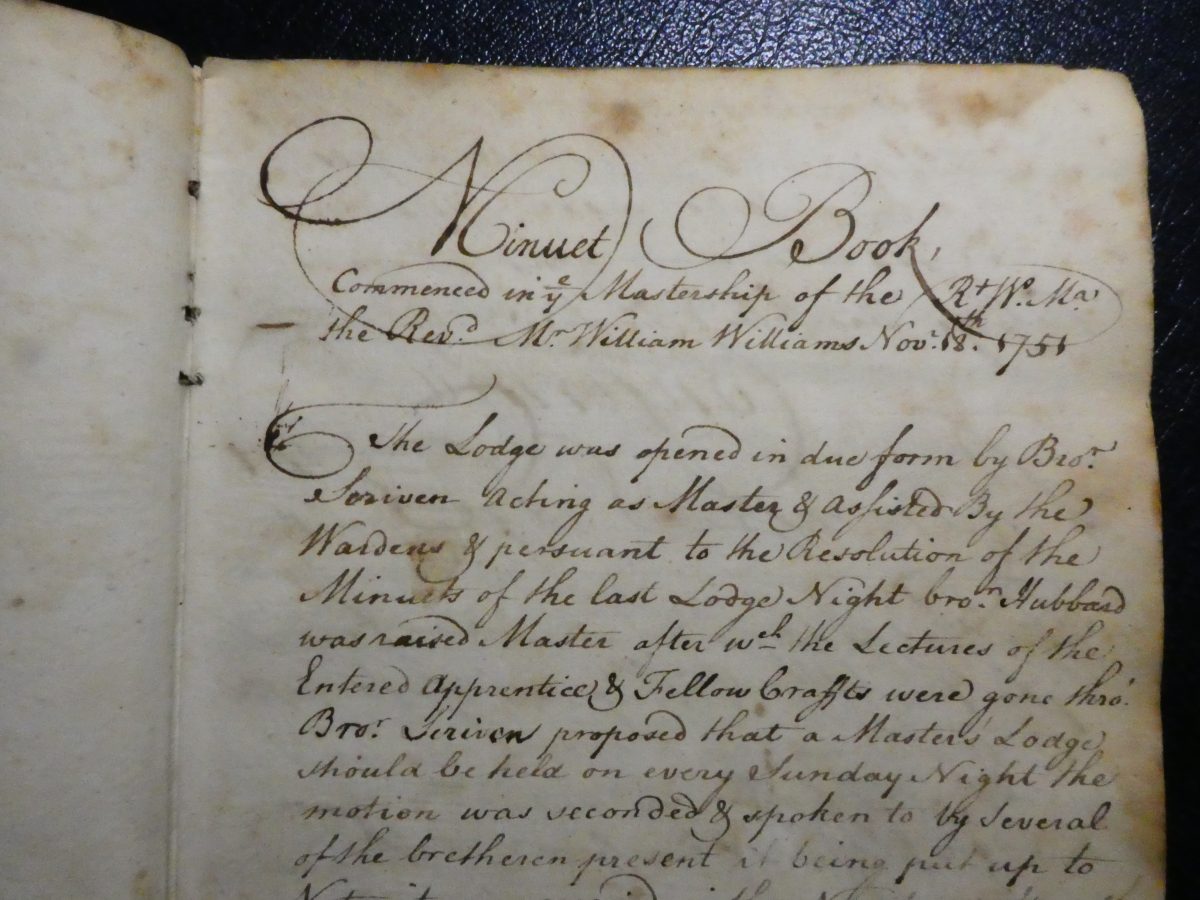 Minuet Book,
Commenced in yᵉ Mastership of the Rᵗ Wᵒ. Maʳ
the Revᵈ. Mʳ William Williams Novʳ. 18ᵗʰ. 1751
The Lodge was opened in due form by Broʳ.
Scriven acting as Master & assisted By the
Wardens & persuant to the Resolution of the
Minuets of the last Lodge Night broʳ. Hubbard
was raised Master after wᶜʰ the Lectures of the
Entered Apprentice & Fellow Craffts were gone thro'.
Broʳ. Scriven proposed that a Master's Lodge
should be held on every Sunday Night the
motion was seconded & spoken to by several
of the bretheren present it being put up to